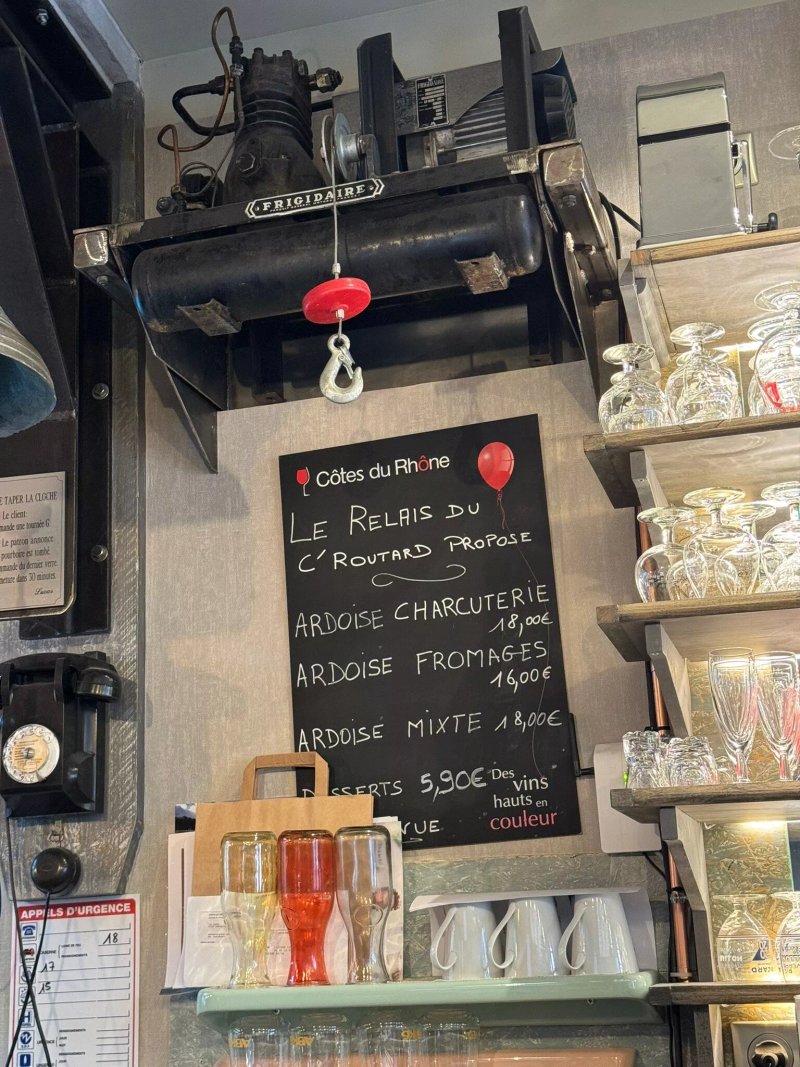 FRIGIDAIRE
Côtes du Rhône
LE RELAIS DU
C'ROUTARD PROPOSE
ARDOISE CHARCUTERIE
18,00€
ARDOISE FROMAGES
16,00€
ARDOISE MIXTE 18,00€
DESSERTS 5,90€
Des
vins
hauts en
couleur
TAPER LA CLOCHE
Le client:
tournée
Le patron annonce
pourboire est tombé.
du dernier verre.
dans 30 minutes.
APPELS D'URGENCE
18
17
15